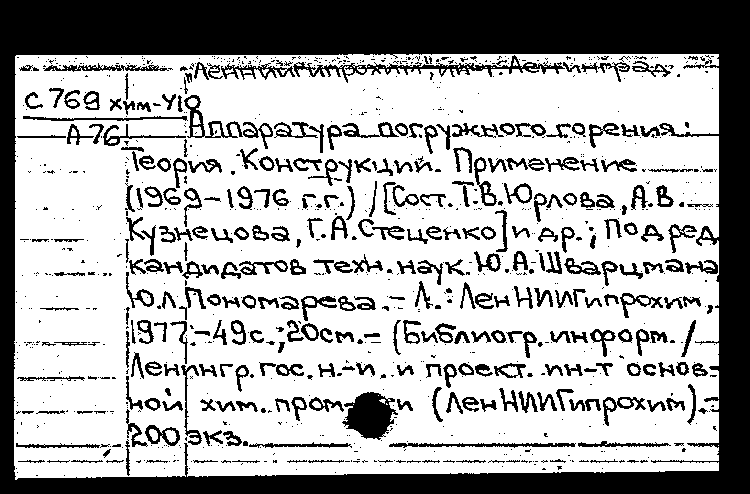 "ЛенНИИГипрохим", ин-т. Ленинград.
С769 хим-У10
А76
Аппаратура погружного горения:
Теория. Конструкции. Применение
(1969-1976 г.г.) / [Сост. Т.В. Юрлова, А.В.
Кузнецова, Г.А. Стеценко] и др.; Под ред.
кандидатов техн. наук Ю.А. Шварцмана,
Ю.Л. Пономарева. - Л.: ЛенНИИГипрохим,
1977. - 49с.; 20см. - (Библиогр. информ. /
Ленингр. гос. н.-и. и проект. ин-т основ-
ной хим. пром-ти (ЛенНИИГипрохим). -
200 экз.